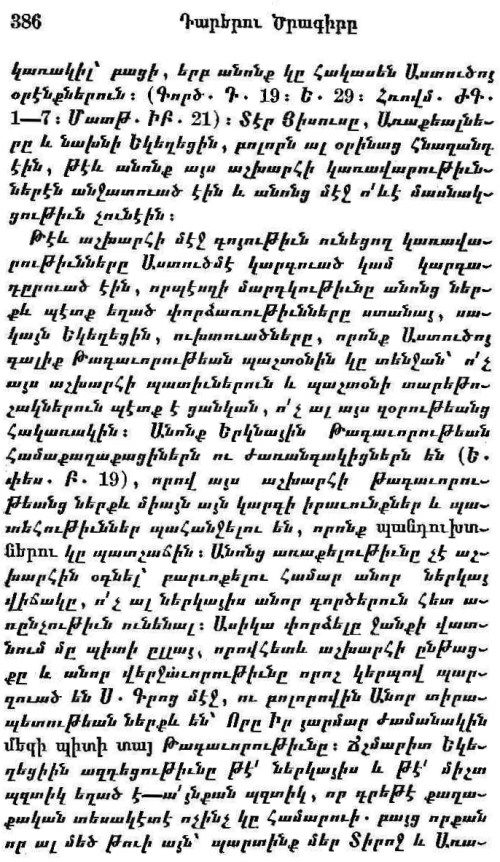 386 Դարերու Ծրագիրը
կառակիլ՝ բացի, երբ անոնք կը հակասեն Աստուծոյ
օրէնքներուն։ (Գործ. Դ. 19։ Ե. 29։ Հռովմ. ԺԳ.
1—7։ Մատթ. ԻԲ. 21)։ Տէր Յիսուսը, Առաքեալնե-
րը և նախնի Եկեղեցին, բոլորն ալ օրինաց հնազանդ
էին, թէև անոնք այս աշխարհի կառավարութիւն-
ներէն անջատուած էին և անոնց մէջ ո՛ևէ մասնակ-
ցութիւն չունէին։
Թէև աշխարհի մէջ գոյութիւն ունեցող կառավա-
րութիւնները Աստուծմէ կարգուած կամ կարգա-
դըրուած էին, որպէսզի մարդկութիւնը անոնց ներ-
քև պէտք եղած փորձառութիւնները ստանայ, սա-
կայն Եկեղեցին, ուխտուածները, որոնք Աստուծոյ
գալիք Թագաւորութեան պաշտօնին կը տենջան՝ ո՛չ
այս աշխարհի պատիւներուն և պաշտօնի տարեթո-
շակներուն պէտք է ցանկան, ո՛չ ալ այս զօրութեանց
հակառակին։ Անոնք Երկնային Թագաւորութեան
համաքաղաքացիներն ու ժառանգակիցներն են (Ե-
փես. Բ. 19), որով այս աշխարհի թագաւորու-
թեանց ներքև միայն այն կարգի իրաւունքներ և պա-
տեհութիւններ պահանջելու են, որոնք պանդուխտ-
ներու կը պատշաճին։ Անոնց առաքելութիւնը չէ աշ-
խարհին օգնել՝ բարւոքելու համար անոր ներկայ
վիճակը, ո՛չ ալ ներկայիս անոր գործերուն հետ ա-
ռընչութիւն ունենալ։ Ասիկա փորձելը ջանքի վատ-
նում մը պիտի ըլլայ, որովհետև աշխարհի ընթաց-
քը և անոր վերջաւորութիւնը որոշ կերպով պար-
զուած են Ս. Գրոց մէջ, ու բոլորովին Անոր տիրա-
պետութեան ներքև են՝ Որը Իր յարմար ժամանակին
մեզի պիտի տայ Թագաւորութիւնը։ Ճշմարիտ Եկե-
ղեցիին ազդեցութիւնը թէ՛ ներկայիս և թէ՛ միշտ
պզտիկ եղած է—ա՛յնքան պզտիկ, որ գրեթէ քաղա-
քական տեսակէտէ ոչինչ կը համարուի. բայց որքան
որ ալ մեծ թուի այն՝ պարտինք մեր Տիրոջ և Առա-